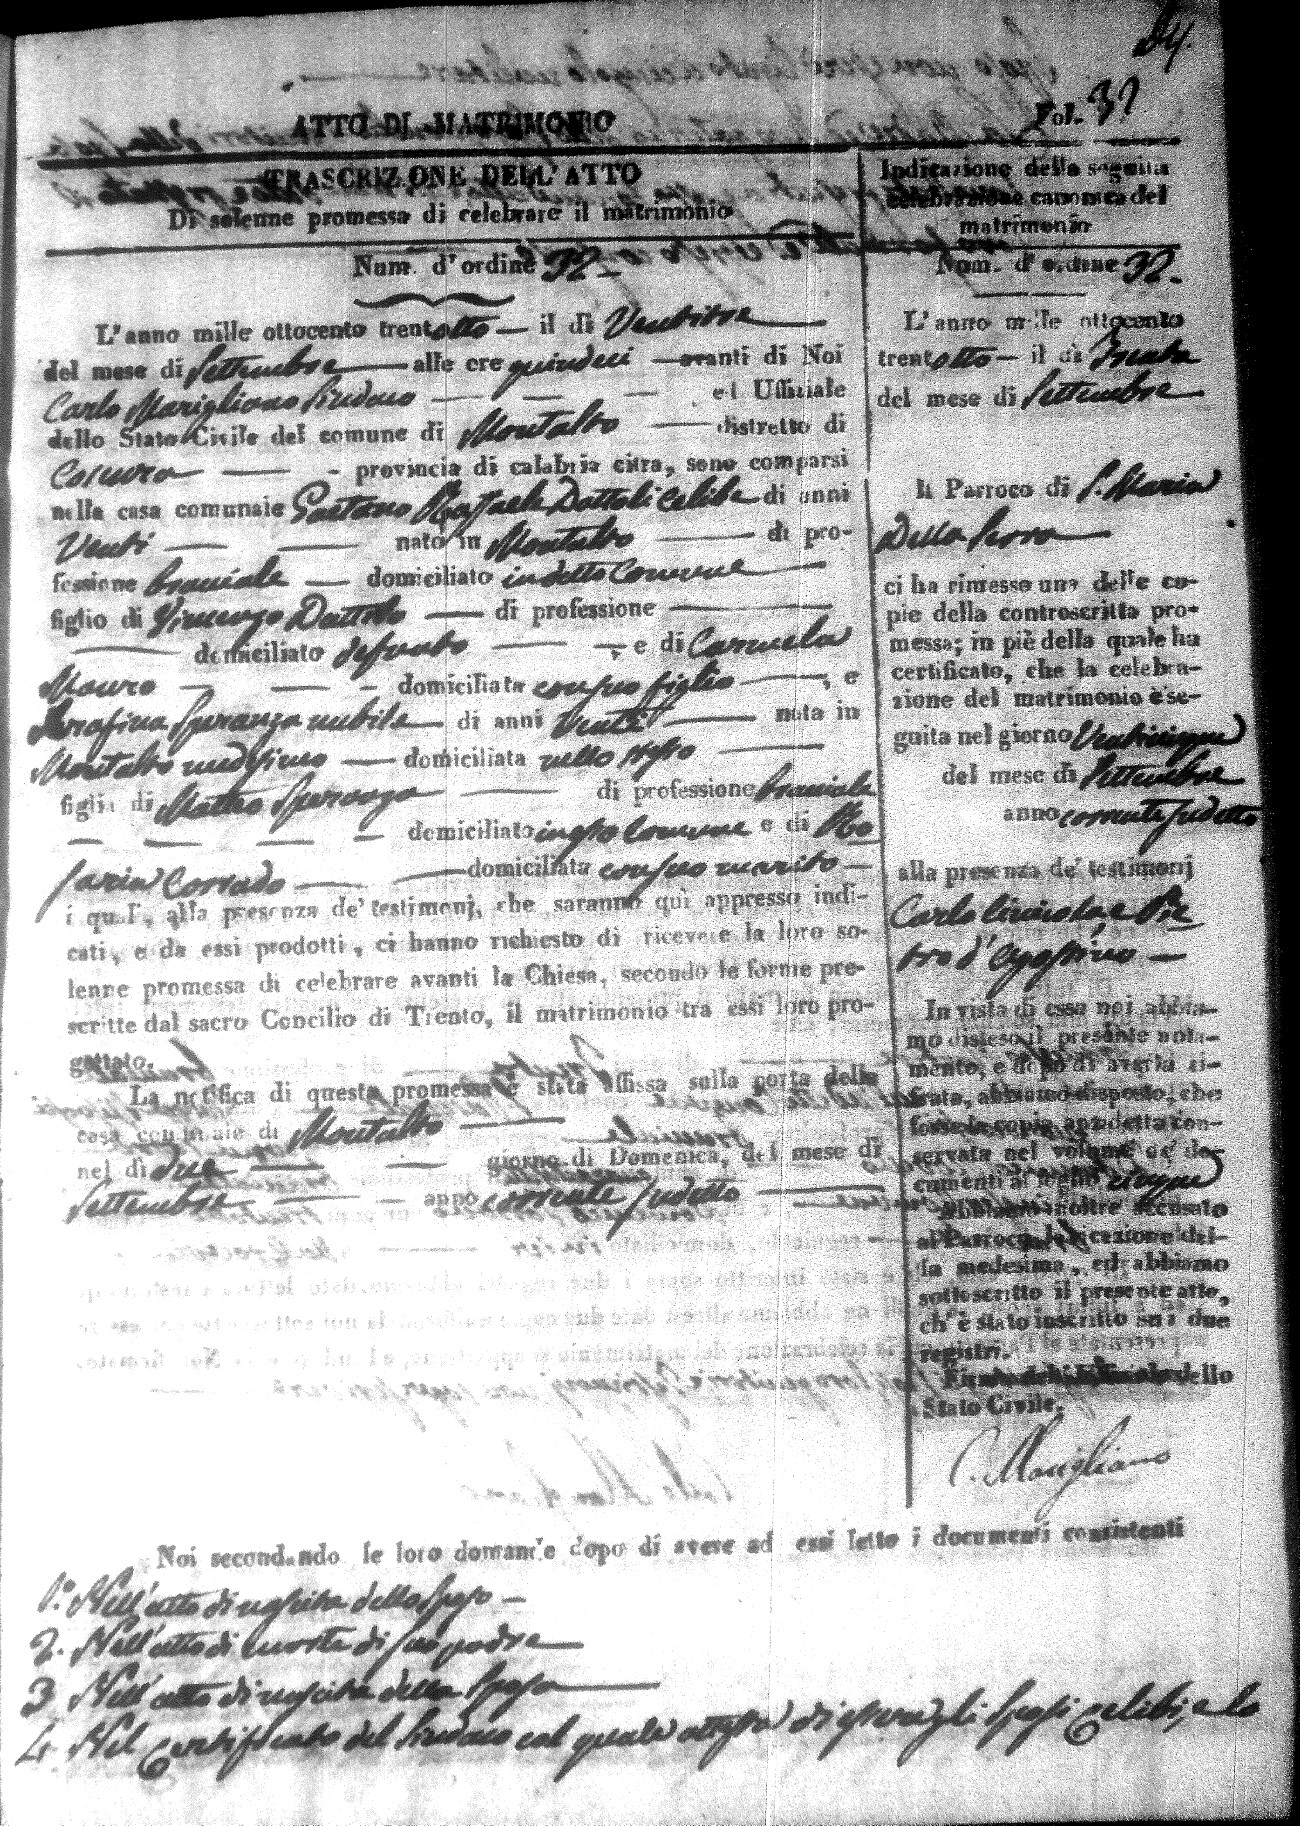 Fol. 32
ATTO DI MATRIMONIO
TRASCRIZIONE DELL'ATTO
Di solenne promessa di celebrare il matrimonio
Num. d'ordine 32
L'anno mille ottocento trentotto il dì Ventitre
del mese di Settembre alle ore quindici avanti di Noi
Carlo Marigliano Sindaco ed Uffiziale
dello Stato Civile del comune di Montalto distretto di
Cosenza provincia di calabria citra, sono comparsi
nella casa comunale Gaetano Raffaele Dattoli celibe di anni
Venti nato in Montalto di pro-
fessione bracciale domiciliato in detto Comune
figlio di Vincenzo Dattolo di professione
domiciliato defunto e di Carmela
Mauro domiciliata con suo figlio, e
Serafina Speranza nubile di anni Venti nata in
Montalto medesimo domiciliata nello stesso
figlia di Matteo Speranza di professione bracciale
domiciliato in esso Comune e di Ro
saria Corrado domiciliata con suo marito
i quali, alla presenza de' testimonj, che saranno qui appresso indi-
cati, e da essi prodotti, ci hanno richiesto di ricevere la loro so-
lenne promessa di celebrare avanti la Chiesa, secondo le forme pre-
scritte dal sacro Concilio di Trento, il matrimonio tra essi loro pro-
gettato.
La notifica di questa promessa è stata affissa sulla porta della
casa comunale di Montalto
nel dì due giorno di Domenica, del mese di
Settembre anno corrente sudetto
Indicazione della seguita
celebrazione canonica del
matrimonio
Num. d'ordine 32.
L'anno mille ottocento
trentotto il dì Trenta
del mese di Settembre
Il Parroco di S. Maria
Della Serra
ci ha rimesso una delle co-
pie della controscritta pro-
messa; in piè della quale ha
certificato, che la celebra-
zione del matrimonio è se-
guita nel giorno Venticinque
del mese di Settembre
anno corrente sudetto
alla presenza de' testimonj
Carlo e Pie
tro d'Agostino
In vista di essa noi abbia-
mo disteso il presente nota-
mento, e dopo di averla ci-
frata, abbiamo disposto, che
fosse la copia anzidetta con-
servata nel volume de' do-
cumenti al foglio cinque
Abbiamo inoltre accusato
al Parroco la ricezione del-
la medesima, ed abbiamo
sottoscritto il presente atto,
ch'è stato inscritto sui due
registri.
dello
Stato Civile.
C. Marigliano
Noi secondando le loro domande dopo di avere ad essi letto i documenti consistenti
1.° Nell'atto di nascita dello Sposo
2. Nell'atto di morte di suo padre
3 Nell'atto di nascita della Sposa
4. Nel Certificato del Sindaco col quale attesta di essere gli Sposi Celibi, e lo